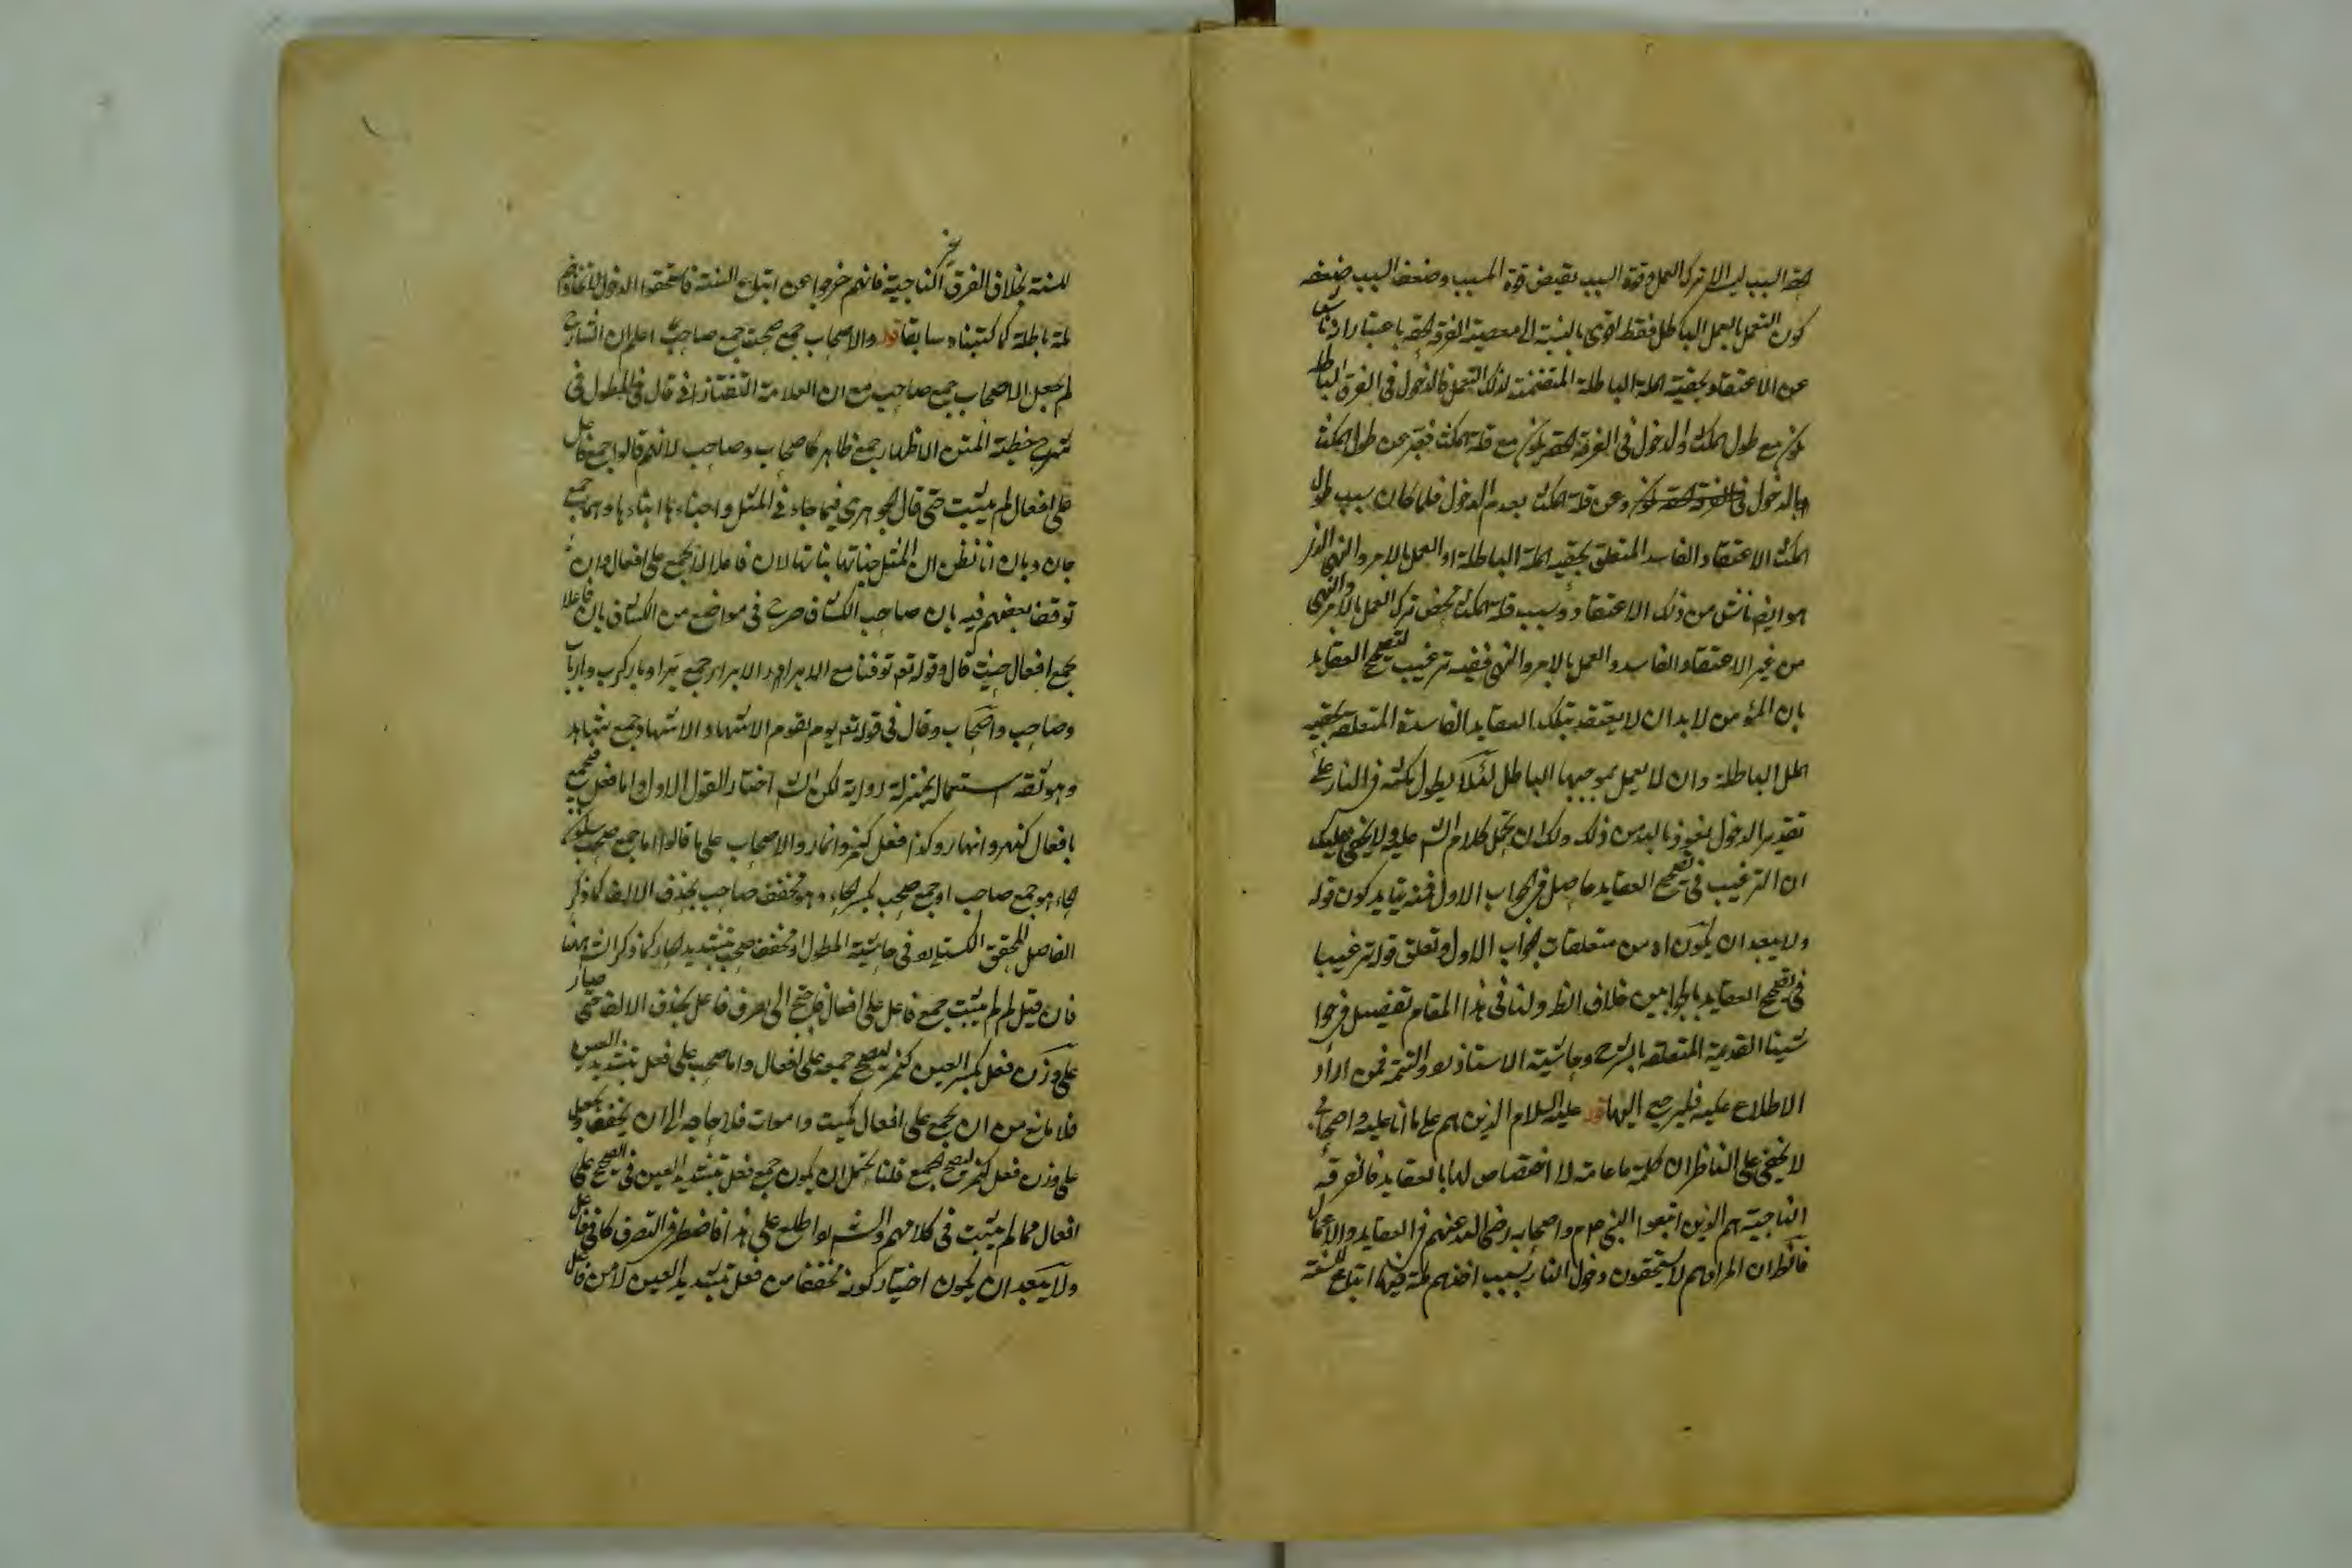 السبب ليس الا ترك العمل وقوة السبب يقتضى قوة المسبب وضعف السبب ضعفه
كون العمل الباطل فقط اقوى بالنسبة الى معصية الفرقة باعتبار انه ناش
عن الاعتقاد بحقية الملة الباطلة المتضمنة لذلك العمل فالدخول فى الفرق الباطلة
مع طول المكث والدخول فى الفرقة مع قلة المكث فعبر عن طول المكث
بالدخول وعن قلة المكث بعدم الدخول فلما كان سبب طول
المكث الاعتقاد الفاسد المتعلق بحقية الملة الباطلة او العمل بالامر والنهى الذى
هو ايضا ناش من ذلك الاعتقاد وسبب قلة المكث محض ترك العمل بالامر والنهى
من غير الاعتقاد الفاسد والعمل بالامر والنهى ففيه ترغيب لتصحيح العقايد
بان المؤمن لا بد ان لا يعتقد بتلك العقايد الفاسدة المتعلقة بحقية
الملل الباطلة وان لا يعمل بموجبها الباطل لئلا يطول مكثه فى النار على
تقدير الدخول نعوذ بالله من ذلك ولك ان تحمل كلام الش عليه ولا يخفى عليك
ان الترغيب فى تصحيح العقايد حاصل فى الجواب الاول فمنه يتايد كون قوله
ولا يبعد ان يكون اه من متعلقات الجواب الاول وتعلق قوله ترغيبا
فى تصحيح العقايد بالجوابين خلاف الظ ولنا فى هذا المقام تفصيل فى حوا
شينا القديمة المتعلقة بالشرح وحاشية الاستاذ والتتمة فمن اراد
الاطلاع عليه فليرجع اليها قوله عليه السلام الذين هم على ما انا عليه واصحابى
لا يخفى على الناظر ان كلمة ما عامة لا اختصاص لها بالعقايد فالفرقة
الناجية هم الذين اتبعوا النبى صلم واصحابه رضى الله عنهم فى العقايد والاعمال
فالظ ان المراد هم لا يستحقون دخول النار بسبب اخذهم ملة فيها اتباع للسنة
للسنة بخلاف الفرق الغير الناجية فانهم خرجوا عن اتباع السنة فاستحقوا الدخول لاتخاذهم
ملة باطلة كما كتبناه سابقا قوله والاصحاب جمع صحب جمع صاحب اعلم ان الشارح
لم يجعل الاصحاب جمع صاحب مع ان العلامة التفتازانى قال فى المطول فى
شرح خطبة المتن الاظهار جمع ظاهر كاصحاب وصاحب لانهم قالوا جمع فاعل
على افعال لم يثبت حتى قال الجوهرى فيما جاء فى المثل واجناءها ابناءها وهما جمع
جان وبان انا نظن ان المثل جناتها بناتها لان فاعلا لا يجمع على افعال وان
توقف بعضهم فيه بان صاحب الكشاف صرح فى مواضع من الكشاف بان فاعلا
يجمع افعال حيث قال وقوله تع توفنا مع الابرار الابرار جمع بر او بار كرب وارباب
وصاحب واصحاب وقال فى قوله تع يوم يقوم الاشهاد الاشهاد جمع شاهد
وهو ثقة استعماله بمنزلة روايته لكن الش اختار القول الاول واما فعل فيجمع
بافعال كنهر وانهار وكذا فعل كنمر وانمار والاصحاب على ما قالوا اما جمع صحب بسكون
الحاء هو جمع صاحب او جمع صحب بكسر الحاء وهو مخفف صاحب بحذف الالف كما ذكر
الفاضل المحقق الكستلى فى حاشية المطول او مخفف صحب بتشديد الحاء كما ذكر الش هنا
فان قيل لم لم يثبت جمع فاعل على افعال فاحتج الى تصرف فاعل بحذف الالف حتى صار
على وزن فعل بكسر العين كنمر ليصح جمعه على افعال واما صحب على فعل بتشديد العين
فلا مانع من ان يجمع على افعال كميت واموات فلا حاجة الى ان يخفف ويجعل
على وزن فعل كنمر ليصح الجمع قلنا يحتمل ان يكون جمع فعل بتشديد العين فى الصحيح على
افعال مما لم يثبت فى كلامهم والش اطلع على هذا فاضطر فى التصرف كما فى فاعل
ولا يبعد ان يكون اختيار كونه مخففا من فعل بتشديد العين لا من فاعل